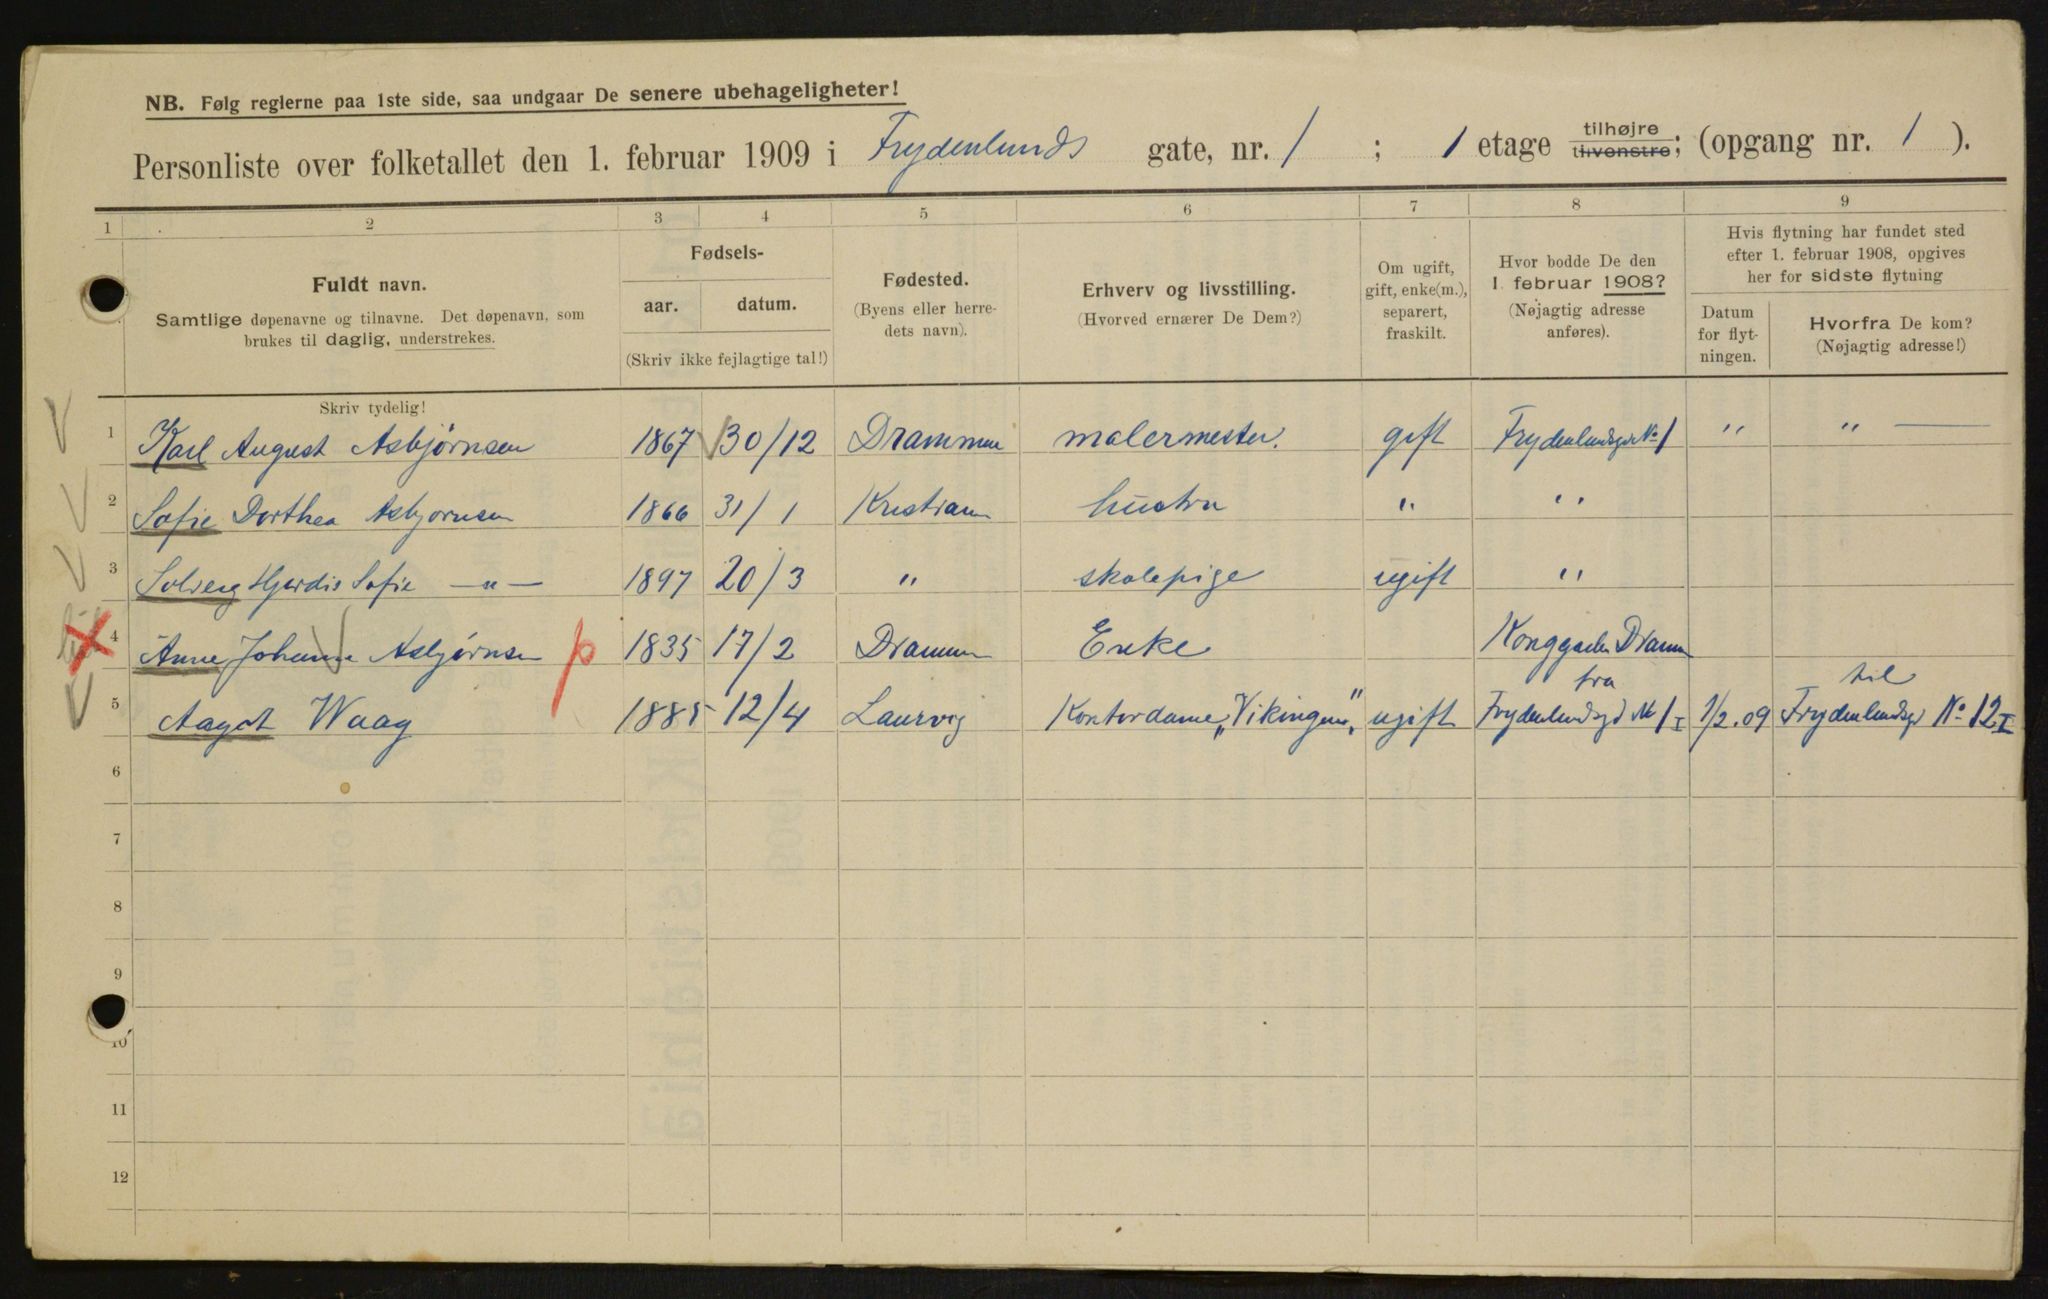 NB. Følg reglerne paa 1ste side, saa undgaar De senere ubehageligheter!
Personliste over folketallet den 1. februar 1909 i Frydenlunds gate, nr. 1 ; 1 etage tilhøjre tilvenstre; (opgang nr. 1 ).
1 2 3 4 5 6 7 8 9
Fuldt navn.
Samtlige døpenavne og tilnavne. Det døpenavn, som
brukes til daglig, understrekes.
Skriv tydelig!
Fødsels-
aar. datum.
(Skriv ikke fejlagtige tal!)
Fødested.
(Byens eller herre-
dets navn).
Erhverv og livsstilling.
(Hvorved ernærer De Dem?)
Om ugift,
gift, enke(m.),
separert,
fraskilt.
Hvor bodde De den
1. februar 1908?
(Nøjagtig adresse
anføres).
Hvis flytning har fundet sted
efter 1. februar 1908, opgives
her for sidste flytning
Datum
for flyt-
ningen.
Hvorfra De kom?
(Nøjagtig adresse!)
1 Karl August Asbjørnsen 1867 30/12 Drammen malermester. gift Frydenlundsgd No 1 " " —
2 Sofie Dorthea Asbjornsen 1866 31/1 Kristiann hustru " "
3 Solveig Hjørdis Sofie —"— 1897 20/3 " skolepige ugift "
4 Anne Johanne Asbjørnsen p 1835 17/2 Drammen Enke Konggaden Dramm
5 Aagot Waag 1885 12/4 Laurvig Kontordame „Vikingen" ugift fra Frydenlundsgd No 1 I 1/2.09 til Frydenlundsgd No 12 I
6
7
8
9
10
11
12